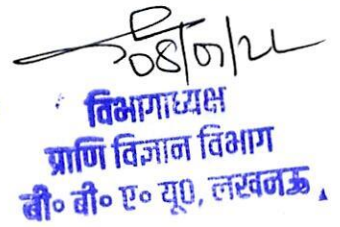 08/07/22
विभागाध्यक्ष
प्राणि विज्ञान विभाग
बी० बी० ए० यू०, लखनऊ